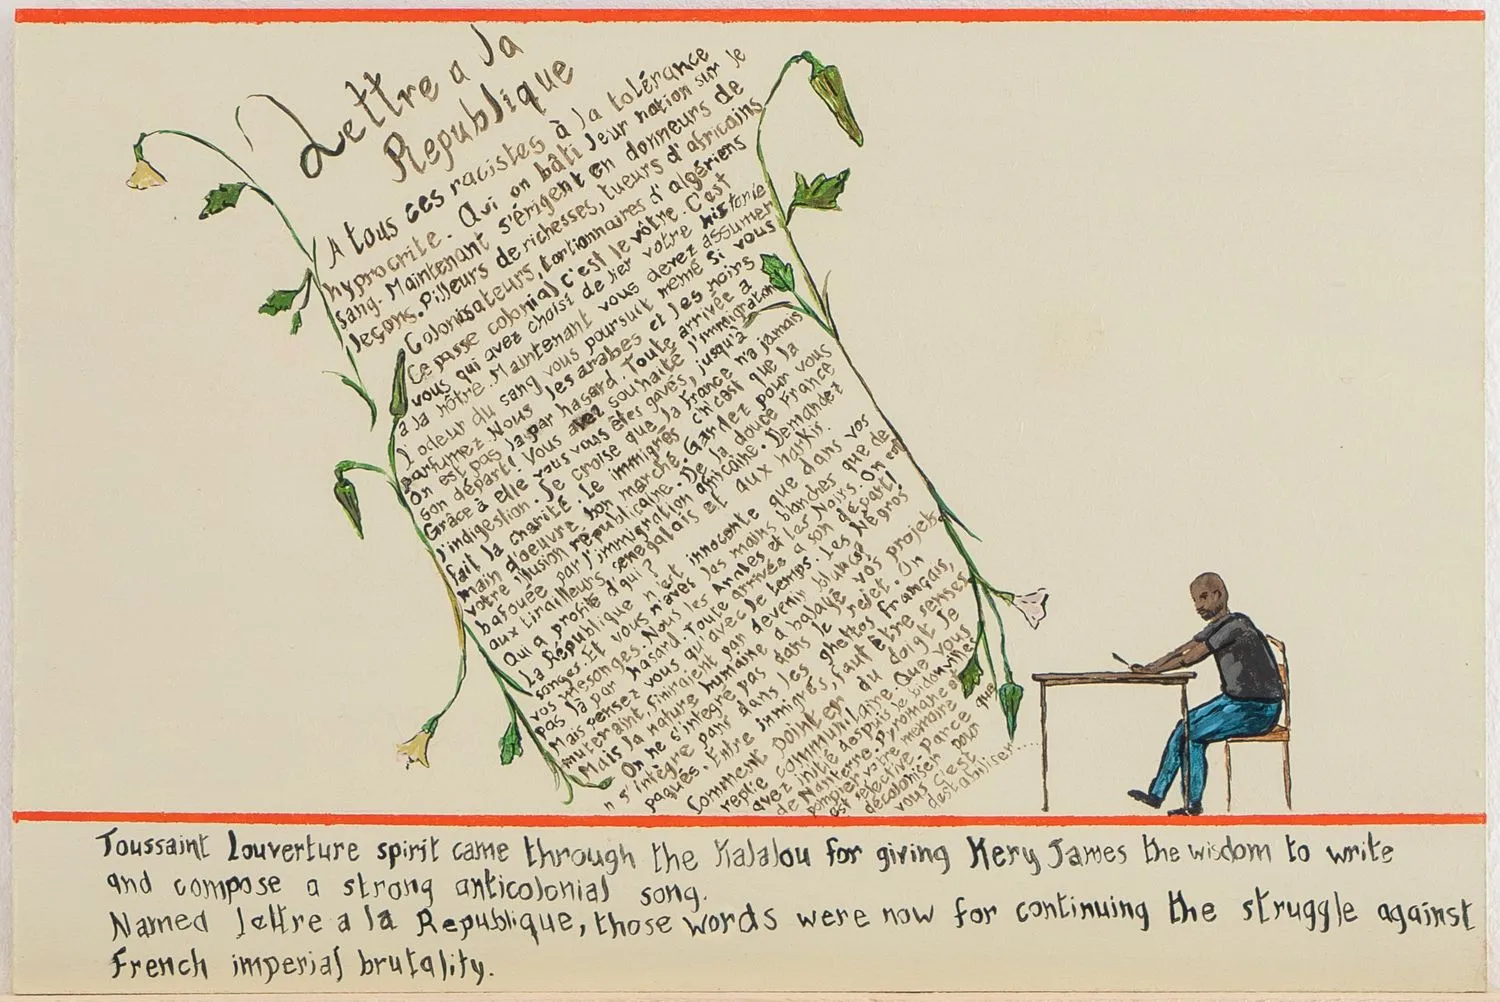 Lettre a la
Republique
A tous ces racistes à la tolérance
hyprocrite. Qui on bâti leur nation sur le
sang. Maintenant s'érigent en donneurs de
leçons. Pilleurs de richesses, tueurs d'africains
Colonisateurs, tortionnaires d'algériens
Ce passe colonial c'est le vôtre. C'est
vous qui avez choisi de lier votre histoire
a la nôtre. Maintenant vous devez assumer
l'odeur du sang vous poursuit même si vous
parfumez Nous les arabes et les noirs
On est pas la par hasard. Toute arrivée a
son départ! Vous avez souhaité l'immigration
Grâce à elle vous vous êtes gavés, jusqu'à
l'indigestion. Je croise que la France n'a jamais
fait la charité. Le immigrés c'n'cest que la
main d'oeuvre bon marché. Gardez pour vous
votre illusion républicaine. De la douce France
bafouée par l'immigration africaine. Demandez
aux tirailleurs sénégalais et aux harkis.
Qui a profité d'qui?
La République n'est innocente que dans vos
songes. Et vous n'avez les mains blanches que de
vos mesonges. Nous les Arabes et les Noirs. On est
pas là par hasard. Toute arrivée a son départ!
Mais pensez vous qu'avec le temps. Les Négros
muteraint, finiraient par devenir blancs?
Mais la nature humaine a balayé vos projets.
On ne s'intègre pas dans le rejet. On
n s'intègre pans dans les ghettos français,
Entre immigrés, faut être senses
Comment pointer du doigt le
replie communitaire. Que vous
avez initié despuis le bidonvilles
de Nanterre. Pyromane et
pompier votre mémoire
est sélective. Parce que
vous c'est pour
décoloniser
destabiliser......
Toussaint Louverture spirit came through the Kalalou for giving Kery James the wisdom to write
and compose a strong anticolonial song.
Named lettre a la Republique, those words were now for continuing the struggle against
French imperial brutality.